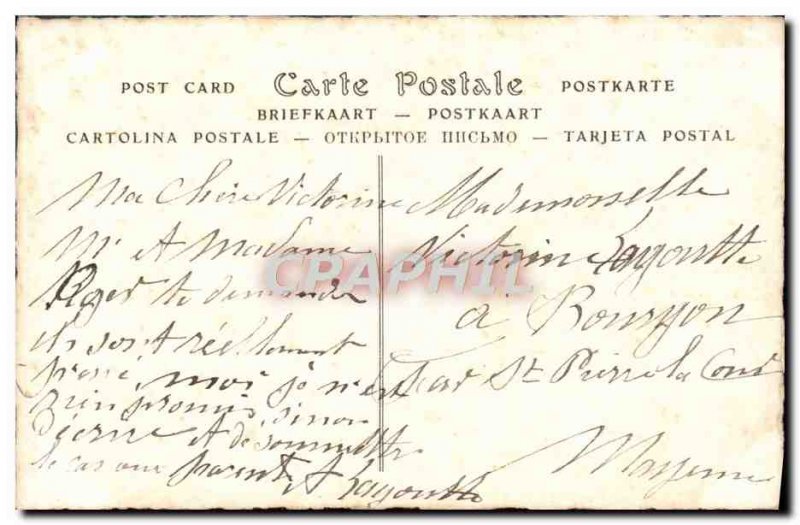 POST CARD Carte Postale POSTKARTE
BRIEFKAART — POSTKAART
CARTOLINA POSTALE — ОТКРЫТОЕ ПИСЬМО — TARJETA POSTAL
Ma Chère Victorine
Mr et Madame
Roger te demande
ils sont réellement
moi je n'ai
rien promis, sinon
d'écrire et de soumettre
le cas aux parents A Lagoutte
Mademoiselle
Victorine Lagoutte
à Bourgon
par St Pierre la Cour
Mayenne
CPAPHIL